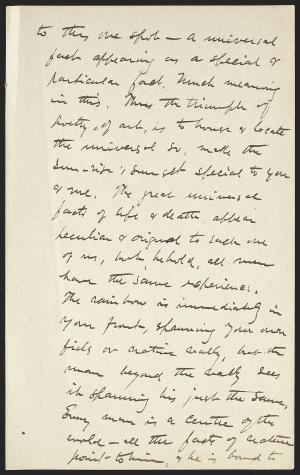 to this one spot — a universal
fact appearing as a special &
particular fact. Much meaning
in this. Thus the triumph of
poetry, of art, is to house & locate
the universal so, make the
sun-rise & sunset special to you
& me. The great universal
facts of life & death appear
peculiar & original to each one
of us, but, behold, all men
have the same experience.
The rainbow is immediately in
your front, spanning your own
fields or native valley, but the
man beyond the valley sees
it spanning his just the same.
Every man is a centre of the
world — all the facts of nature
point to him, & he is bound to